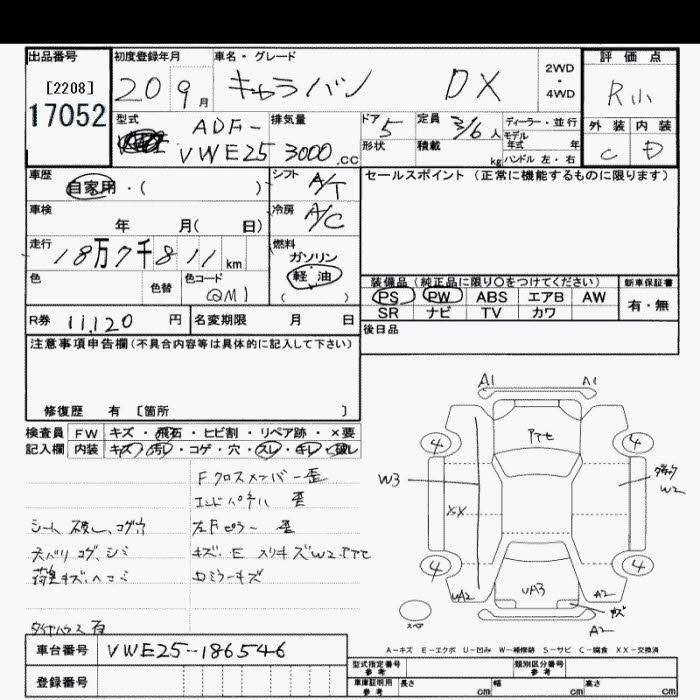 出品番号
[2208]
17052
初度登録年月
20 9月
車名・グレード
キャラバン DX
2WD・4WD
評価点
R小
外装 内装
C D
型式
ADF-
VWE25
排気量
3000.cc
ドア 5
形状
定員 3/6人
積載 kg
ディーラー・並行
モデル年式 年
ハンドル 左・右
車歴
自家用・( )
シフト A/T
セールスポイント (正常に機能するものに限ります)
車検 年 月( 日)
冷房 A/C
走行 18万7千811km
燃料
ガソリン
軽・油
( )
色 色替 色コード QM1
装備品(純正品に限り〇をつけてください)
新車保証書
PS PW ABS エアB AW
有・無
SR ナビ TV カワ
R券 11,120円
名変期限 月 日
後日品
注意事項申告欄(不具合内容等は具体的に記入して下さい)
修復歴 有 [箇所 ]
検査員 FW キズ・飛石・ヒビ割・リペア跡・×要
記入欄 内装 キズ・汚レ・コゲ・穴・スレ・キレ・破レ
Fクロスメンバー歪
エンドパネル 歪
シート 破レ、コゲ穴 左Fピラー 歪
天バリ コゲ、シミ キズ・E スリキズW2、アアセ
荷室キズ、ヘコミ ロミラーキズ
タイヤハウス有
A1 A1
アアセ
4 4
W3
XX
W2
4 4
UA2 UA3 A2
キズ
スペア
A2
A-キズ E-エクボ U-凹み W-補修跡 S-サビ C-腐食 XX-交換済
車台番号 VWE25-186546
登録番号
型式指定番号 参考
類別区分番号 参考
車庫証明用 参考
長さ cm 幅 cm 高さ cm